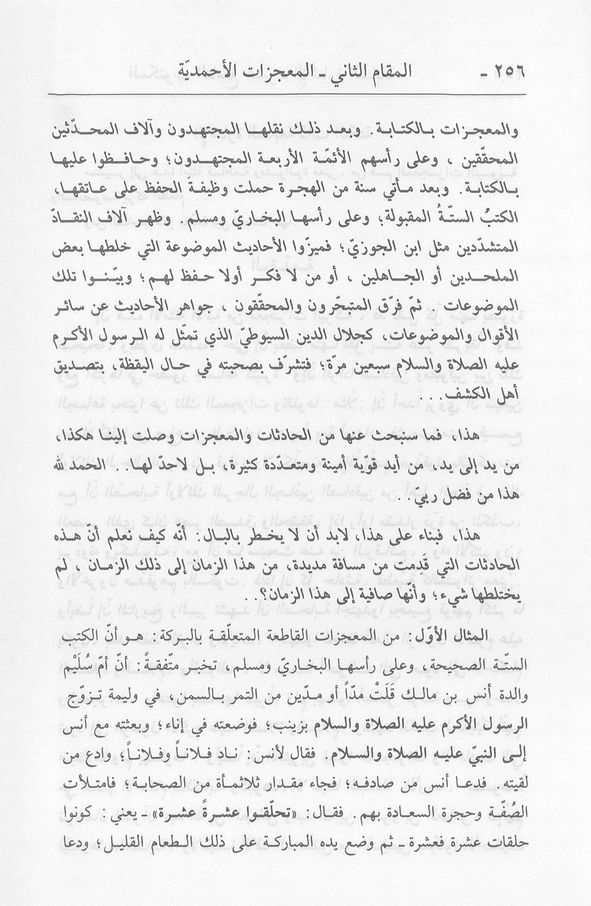 ٢٥٦ - المقام الثاني - المعجزات الأحمديّة
والمعجزات بالكتابة. وبعد ذلك نقلها المجتهدون وآلاف المحدّثين
المحقّقين ، وعلى رأسهم الأئمّة الأربعة المجتهدون؛ وحافظوا عليها
بالكتابة. وبعد مأتي سنة من الهجرة حملت وظيفةَ الحفظ على عاتقها،
الكتبُ الستّةُ المقبولة؛ وعلى رأسها البخاريّ ومسلم. وظهر آلاف النقادّ
المتشدّدين مثل ابن الجوزيّ؛ فميزّوا الأحاديث الموضوعة التي خلطها بعض
الملحدين أو الجاهلين ، أو من لا فكر أولا حفظ لهم؛ وبيّنوا تلك
الموضوعات . ثمّ فرّق المتبحّرون والمحقّقون، جواهر الأحاديث عن سائر
الأقوال والموضوعات، كجلال الدين السيوطيّ الذي تمثّل له الرسول الأكرم
عليه الصلاة والسلام سبعين مرّة؛ فتشرّف بصحبته في حال اليقظة، بتصديق
أهل الكشف. . .
هذا، فما سنبحث عنها من الحادثات والمعجزات وصلت إلينا هكذا،
من يد إلى يد، من أيد قوّية أمينة ومتعدّدة كثيرة، بل لاحدّ لها. . الحمد لله
هذا من فضل ربيّ. .
هذا، فبناء على هذا، لابد أن لا يخطر بالبال: أنه كيف نعلم أنّ هذه
الحادثات التي قَدَمت من مسافة مديدة، من هذا الزمان إلى ذلك الزمان ، لم
يختلطها شيء؛ وأنّها صافية إلى هذا الزمان؟. .
المثال الأوّل: من المعجزات القاطعة المتعلّقة بالبركة: هو أنّ الكتب
الستّة الصحيحة، وعلى رأسها البخاريّ ومسلم، تخبر متّفقةً: أنّ أمّ سُلَيْم
والدة أنس بن مالك قَلَتْ مدّاً أو مدّين من التمر بالسمن، في وليمة تزوّج
الرسول الأكرم عليه الصلاة والسلام بزينب؛ فوضعته في إناء؛ وبعثته مع أنس
إلى النبيّ عليه الصلاة والسلام. فقال لأنس: ناد فلاناً وفلاناً؛ وادع من
لقيته. فدعا أنس من صادفه؛ فجاء مقدار ثلاثمأة من الصحابة؛ فامتلأت
الصُفّة وحجرة السعادة بهم. فقال: «تحلّقوا عشرةً عشرة» - يعني: كونوا
حلقات عشرة فعشرة - ثم وضع يده المباركة على ذلك الطعام القليل؛ ودعا